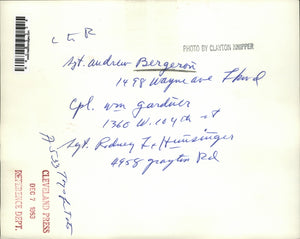 L E R
PHOTO BY CLAYTON KNIPPER
Sgt. Andrew Bergeron
1498 Wayne ave Lkwd
Cpl. Wm Gardner
1360 W. 104th st
Sgt. Rodney L. Hunsinger
4958 Grayton Rd
CLEVELAND PRESS
DEC 7 1953
REFERENCE DEPT.